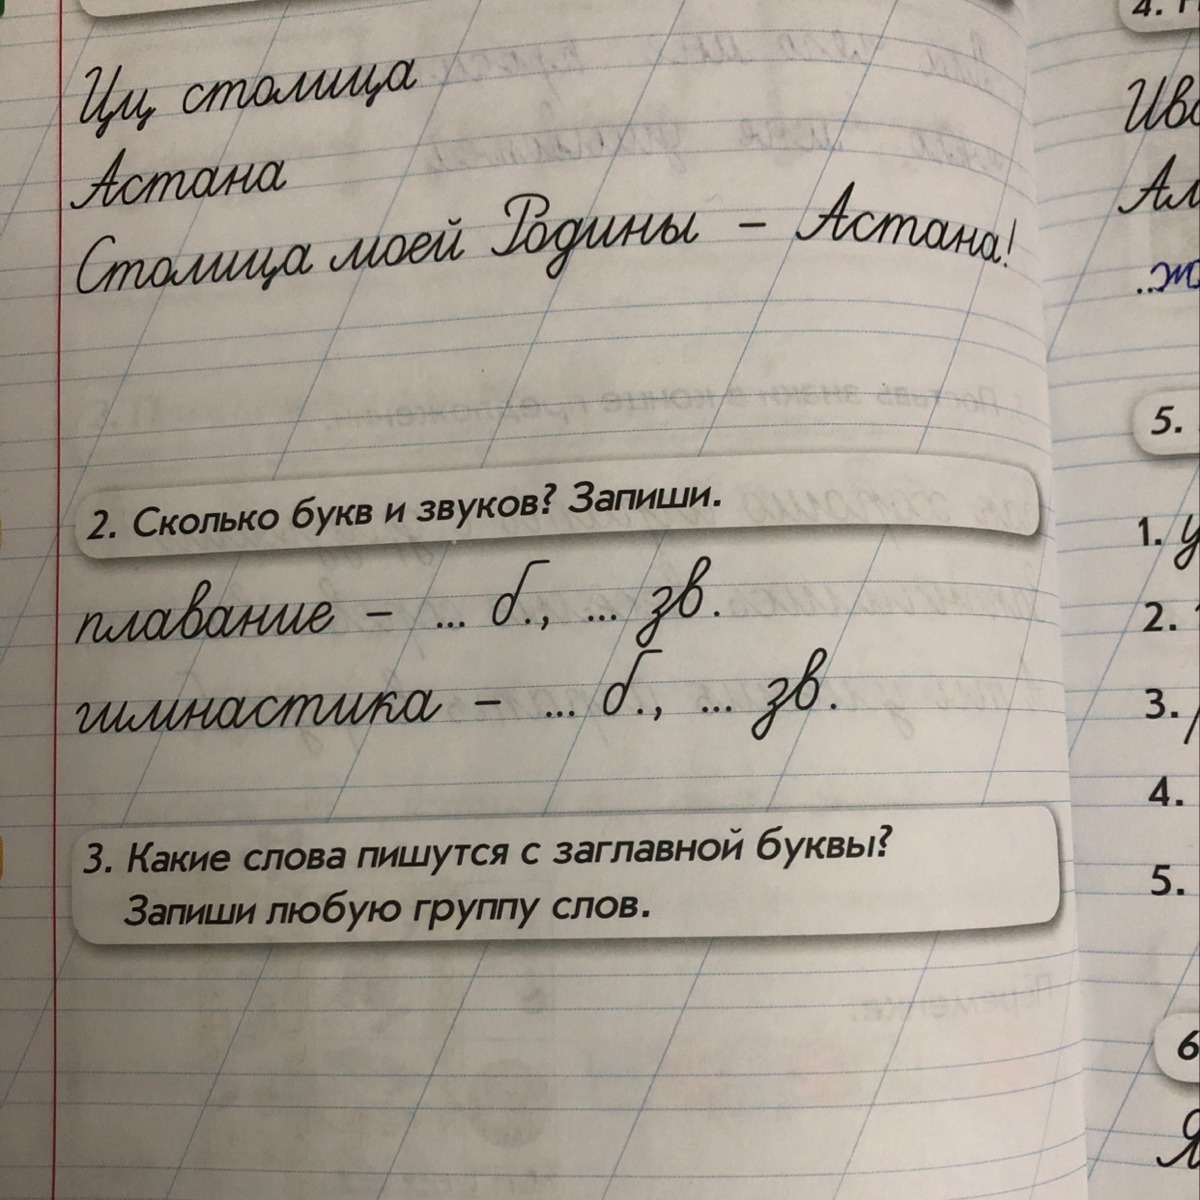 4.
Цц столица
Астана
Столица моей Родины – Астана!
..
5.
2. Сколько букв и звуков? Запиши.
1. у
плавание – ... б., ... зв.
2.
гимнастика – ... б., ... зв.
3.
4.
3. Какие слова пишутся с заглавной буквы?
Запиши любую группу слов.
5.
6
Я